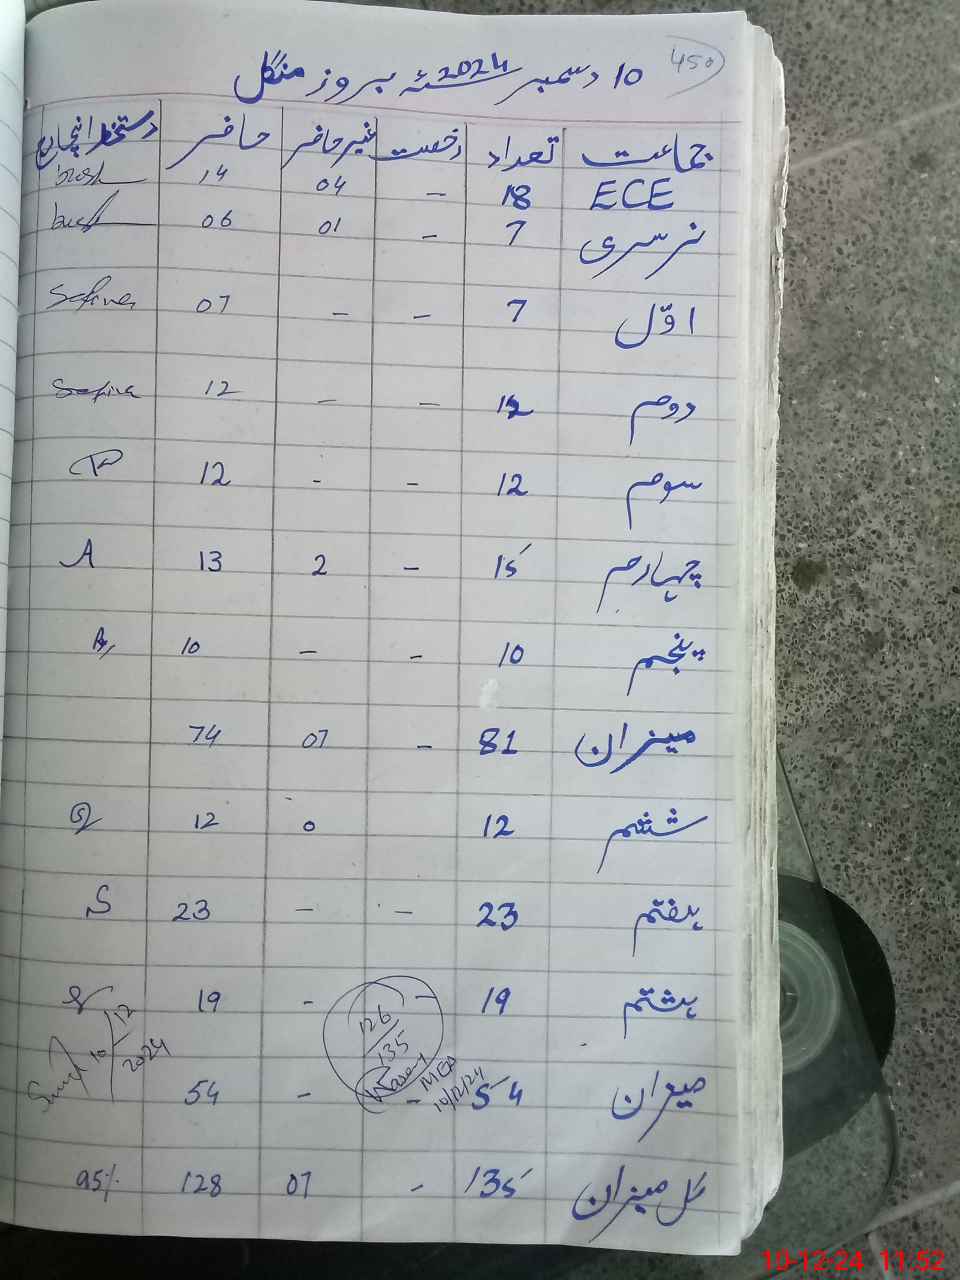 450
10 دسمبر 2024ء بروز منگل
جماعت تعداد رخصت غیر حاضر حاضر دستخط انچارج
ECE 18 - 04 14
نرسری 7 - 01 06
اوّل 7 - - 07 Safina
دوم 12 - - 12 Safina
سوم 12 - - 12
چہارم 15 - 2 13 A
پنجم 10 - - 10
میزان 81 - 07 74
ششم 12 0 12
ہفتم 23 - - 23 S
ہشتم 19 - - 19
میزان 54 - - 54
کل میزان 135 - 07 128 95%
126
135
MEA
10/12/24
10/12
2024
10-12-24 11:52